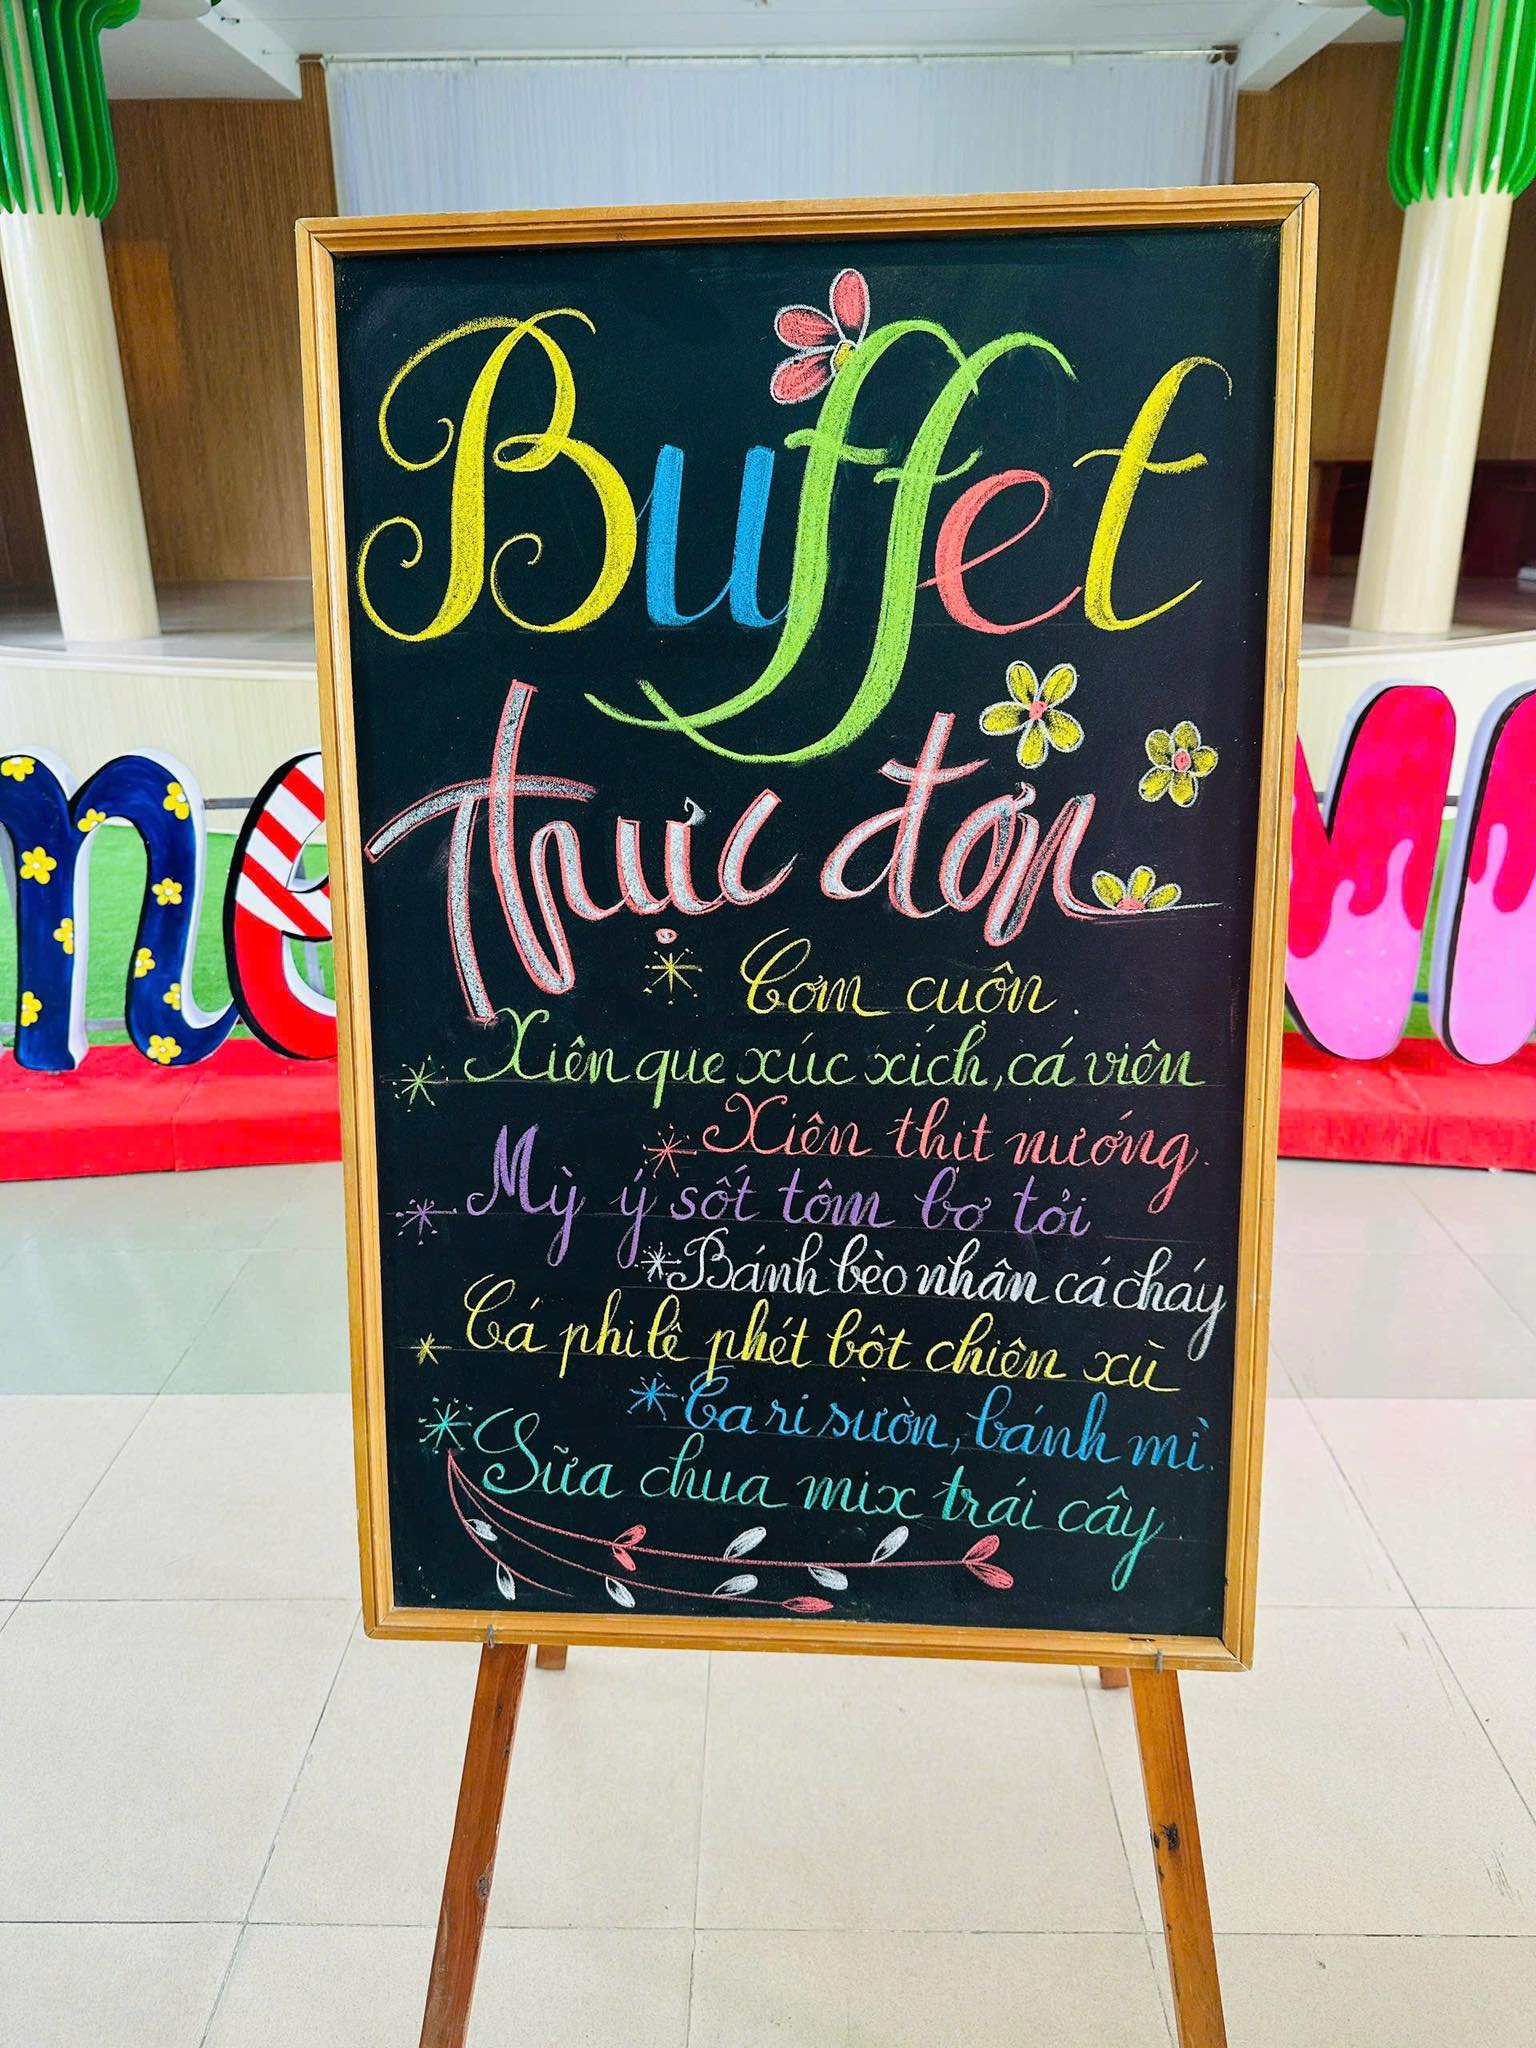 Buffet
thực đơn
Cơm cuộn.
Xiên que xúc xích, cá viên
Xiên thịt nướng.
Mỳ ý sốt tôm bơ tỏi
Bánh bèo nhân cá cháy
Cá phi lê phết bột chiên xù
Ca ri sườn, bánh mì.
Sữa chua mix trái cây.
ne